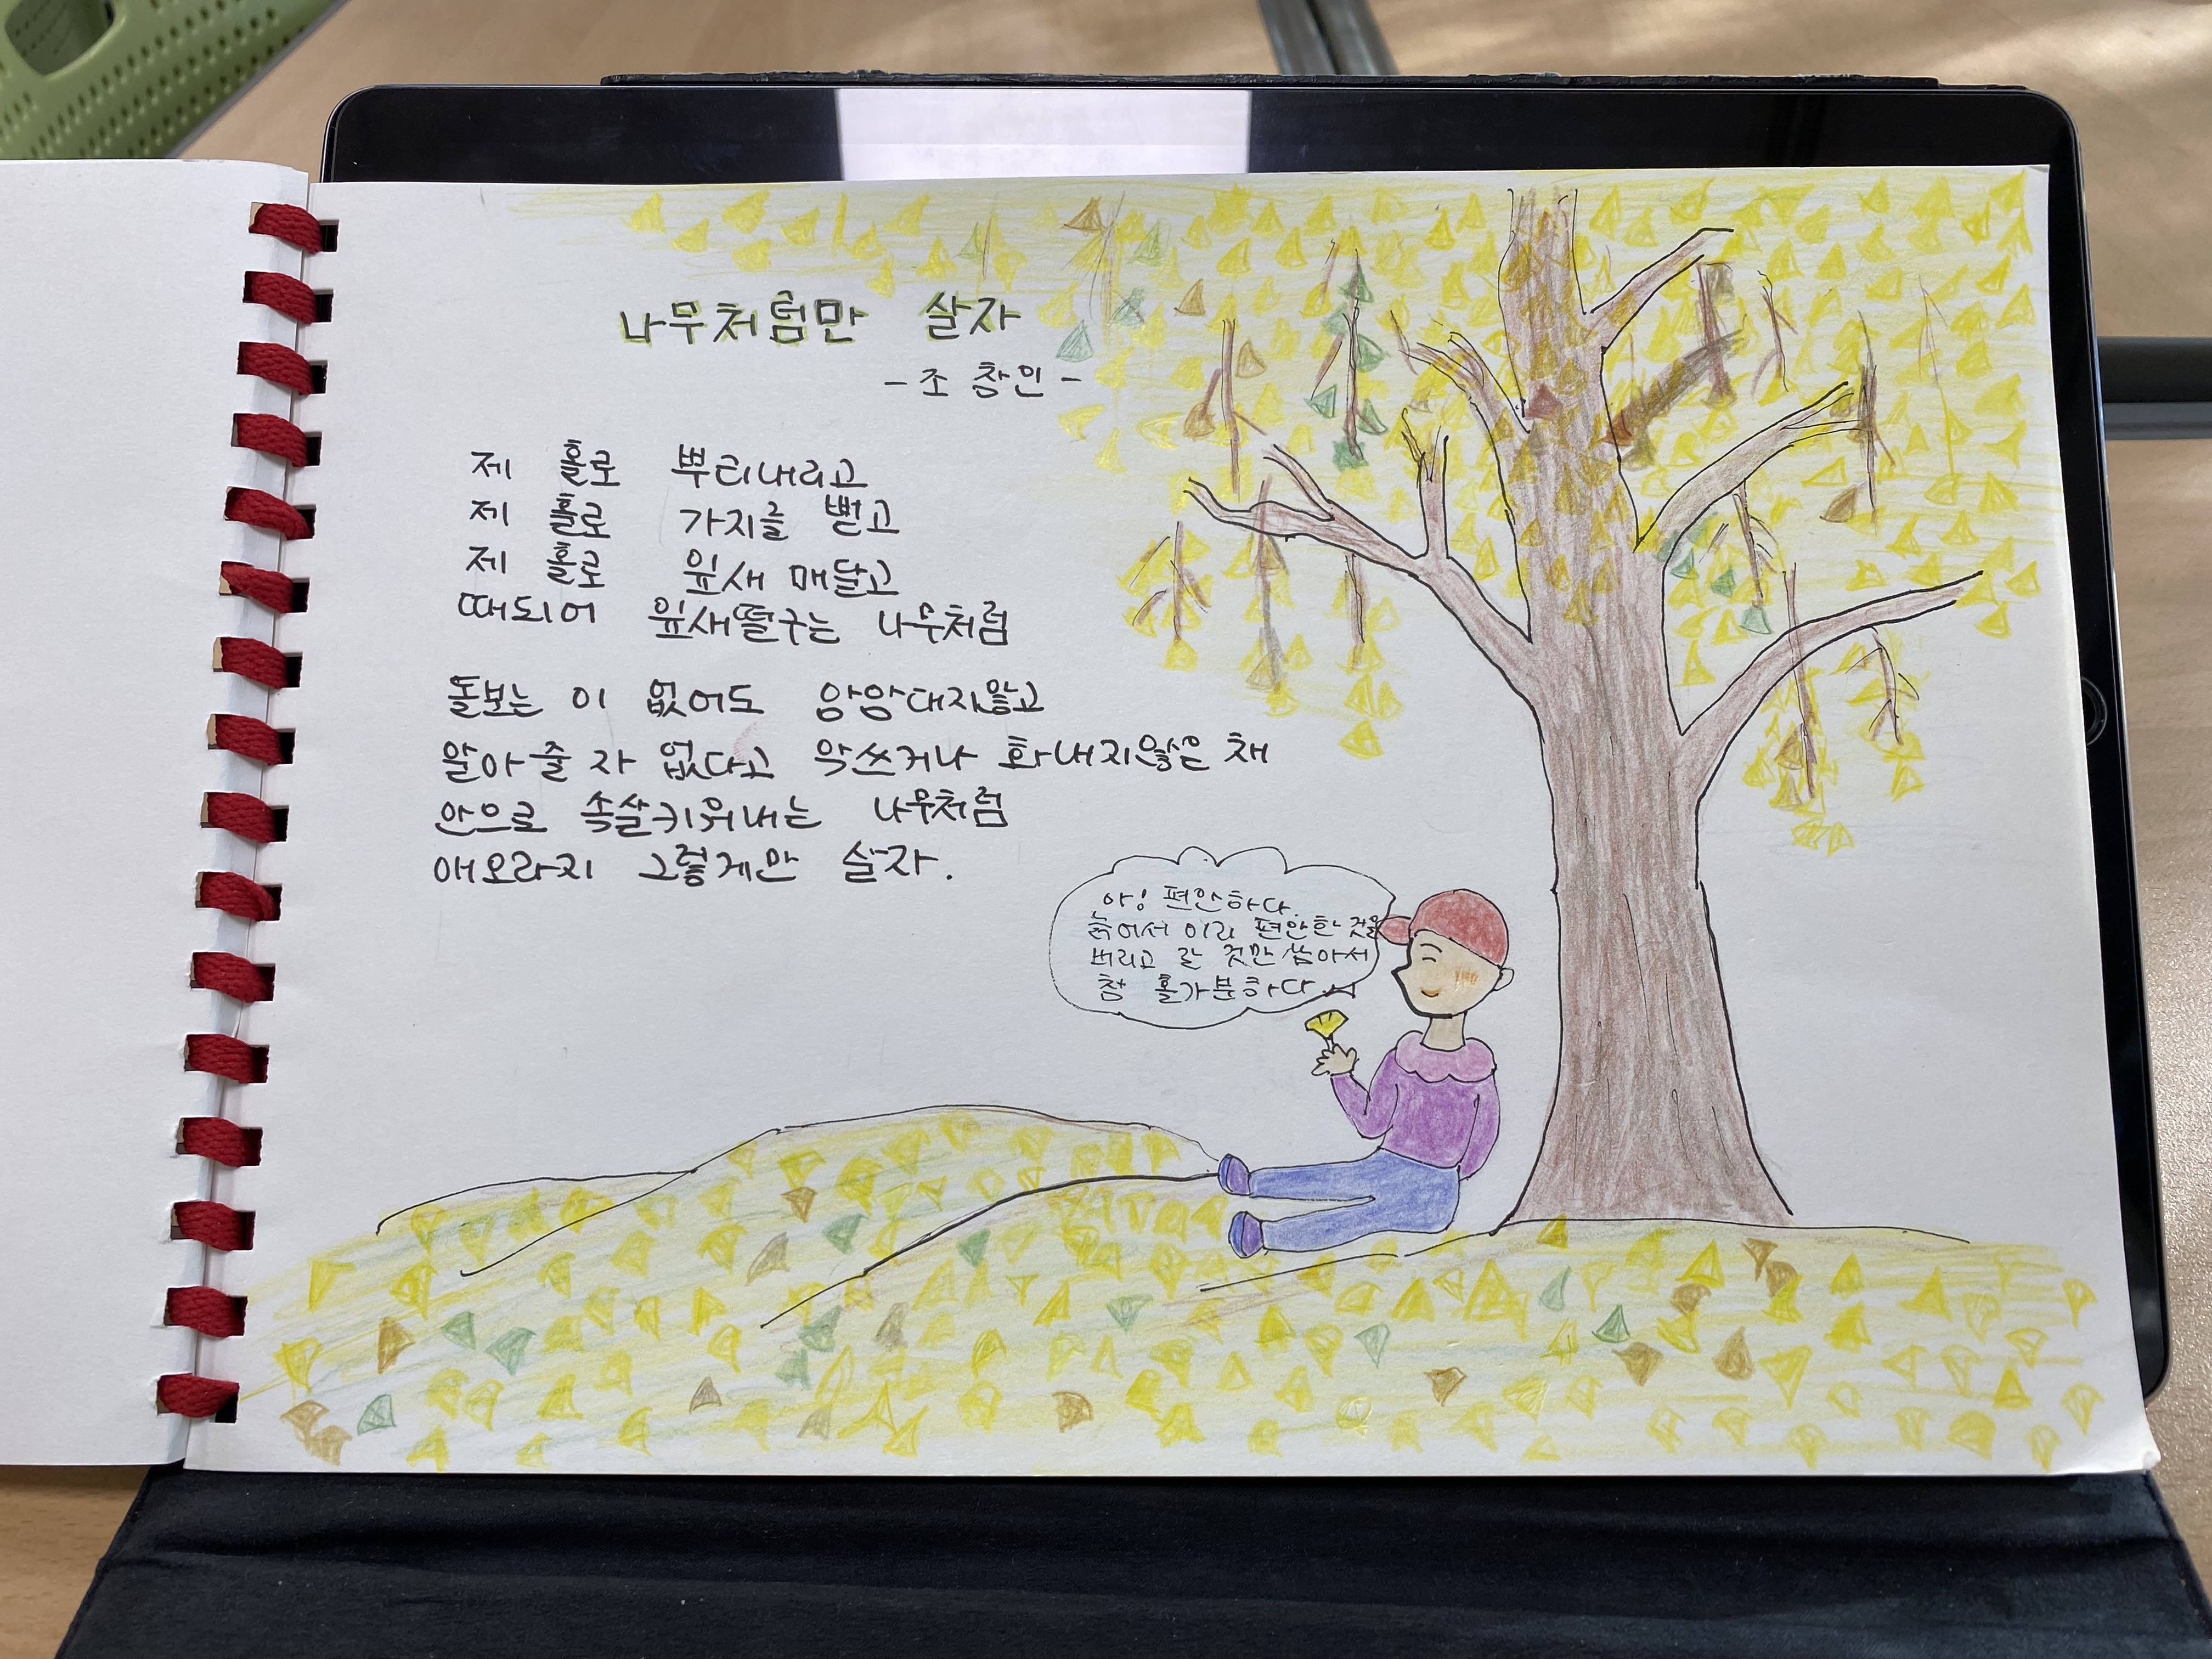 나무처럼만 살자
- 조창인 -
제 홀로 뿌리내리고
제 홀로 가지를 뻗고
제 홀로 잎새 매달고
때되어 잎새떨구는 나무처럼
돌보는 이 없어도 앙앙대지않고
알아줄 자 없다고 악쓰거나 화내지않은 채
안으로 속살키워내는 나무처럼
애오라지 그렇게만 살자.
아! 편안하다.
늙어서 이리 편안한 것을
버리고 갈 것만 남아서
참 홀가분하다.